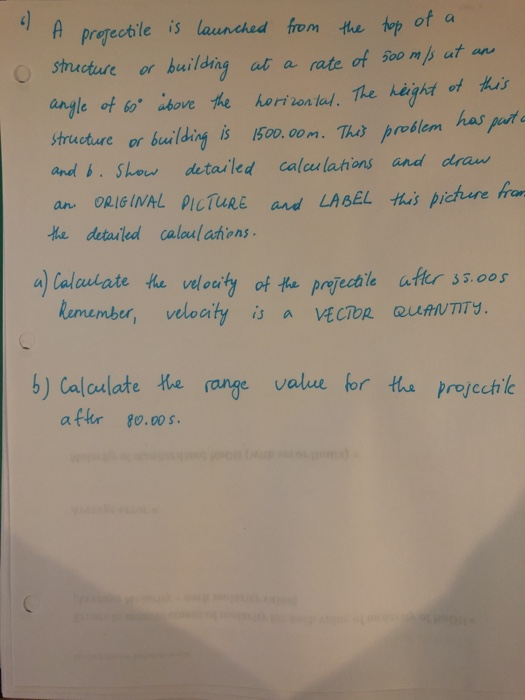 6) A projectile is launched from the top of a
structure or building at a rate of 500 m/s at an
angle of 60° above the horizontal. The height of this
structure or building is 1500.00m. This problem has part a
and b. Show detailed calculations and draw
an ORIGINAL PICTURE and LABEL this picture from
the detailed calculations.
a) Calculate the velocity of the projectile after 35.00s
Remember, velocity is a VECTOR QUANTITY.
b) Calculate the range value for the projectile
after 80.00s.